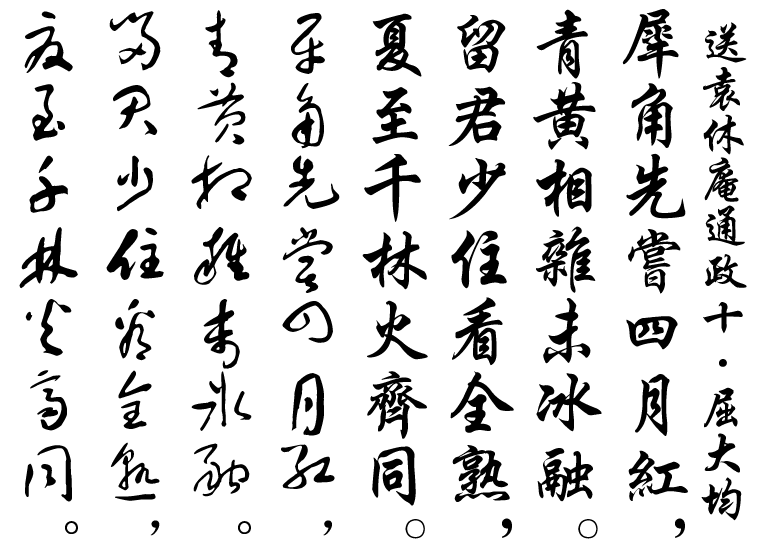 送袁休庵通政十·屈大均
犀角先嘗四月紅，
青黃相雜未冰融。
留君少住看全熟，
夏至千林火齊同。
犀角先嘗四月紅，
青黃相雜未冰融。
留君少住看全熟，
夏至千林火齊同。